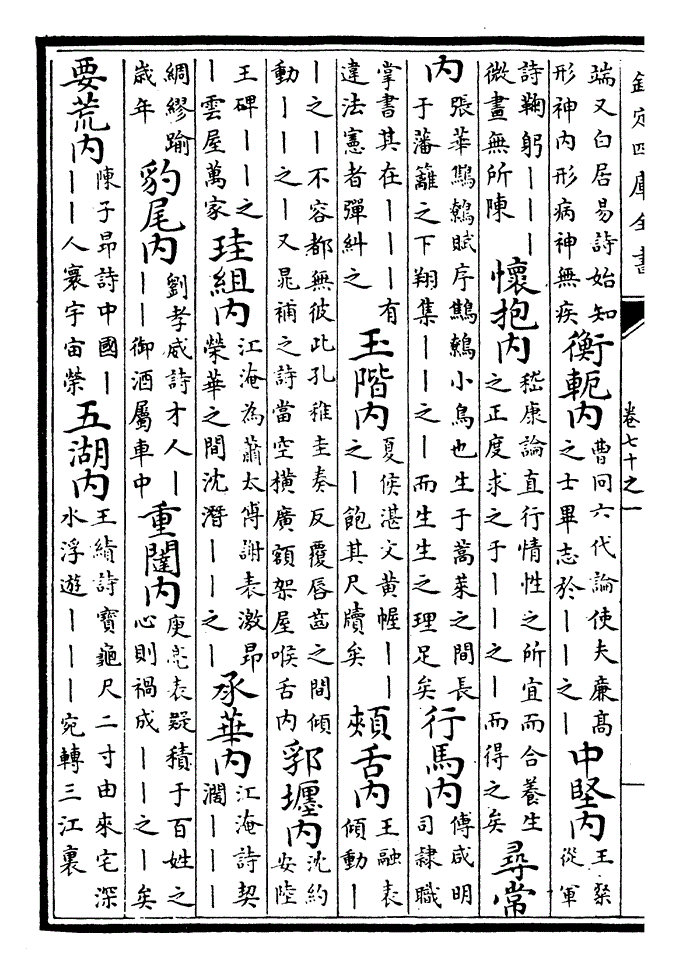 欽定四庫全書
卷七十之一
端又白居易詩始知
形神内形病神無疾
衡軛内
曹冏六代論使夫廉高
之士畢志於丨丨之丨
中堅内
王粲
從軍
詩鞠躬丨丨丨
微畫無所陳
懷抱内
嵇康論直行情性之所宜而合養生
之正度求之于丨丨之丨而得之矣
尋常
内
張華鷦鷯賦序鷦鷯小鳥也生于蒿萊之間長
于藩籬之下翔集丨丨之丨而生生之理足矣
行馬内
傅咸明
司隷職
掌書其在丨丨丨有
違法憲者彈糾之
玉階内
夏侯湛文黄幄丨丨
之丨飽其尺牘矣
頰舌内
王融表
傾動丨
丨之丨不容都無彼此孔稚圭奏反覆唇齒之間傾
動丨丨之丨又晁補之詩當空橫廣額架屋喉舌内
郛㕓内
沈約
安陸
王碑丨丨之
丨雲屋萬家
珪組内
江淹為蕭太傅謝表激昂
榮華之間沈潛丨丨之丨
承華内
江淹詩契
濶丨丨丨
綢繆踰
歲年
豹尾内
劉孝威詩才人丨
丨丨御酒屬車中
重闥内
庾亮表疑積于百姓之
心則禍成丨丨之丨矣
要荒内
陳子昂詩中國丨
丨丨人寰宇宙榮
五湖内
王績詩寶龜尺二寸由來宅深
水浮遊丨丨丨宛轉三江裏